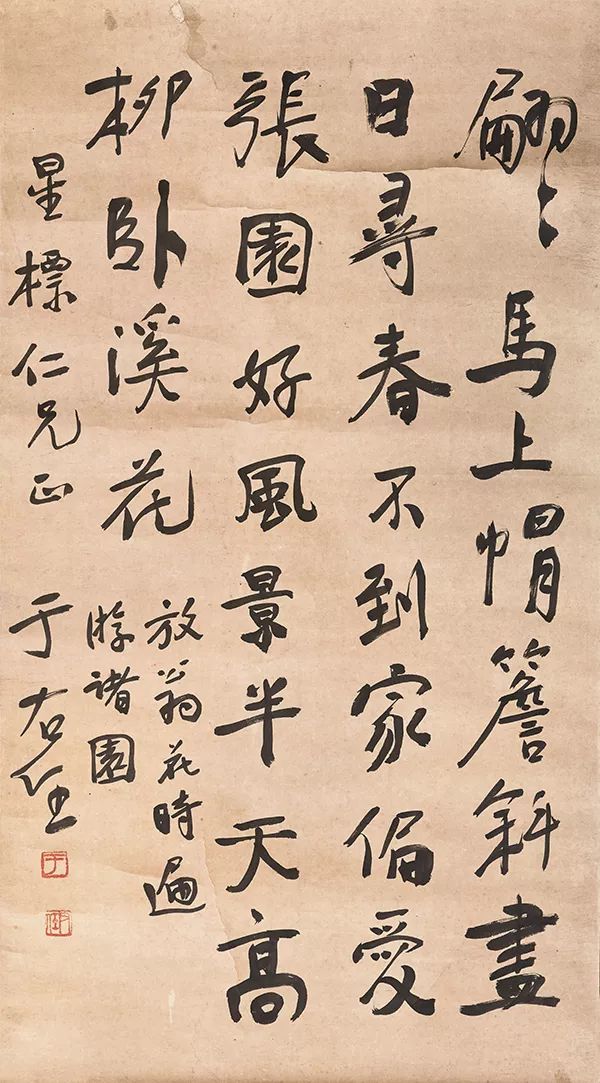 翩〻馬上帽簷斜盡
日尋春不到家偏愛
張園好風景半天高
柳卧溪花
放翁花時遍
游諸園
星標仁兄正
于右任